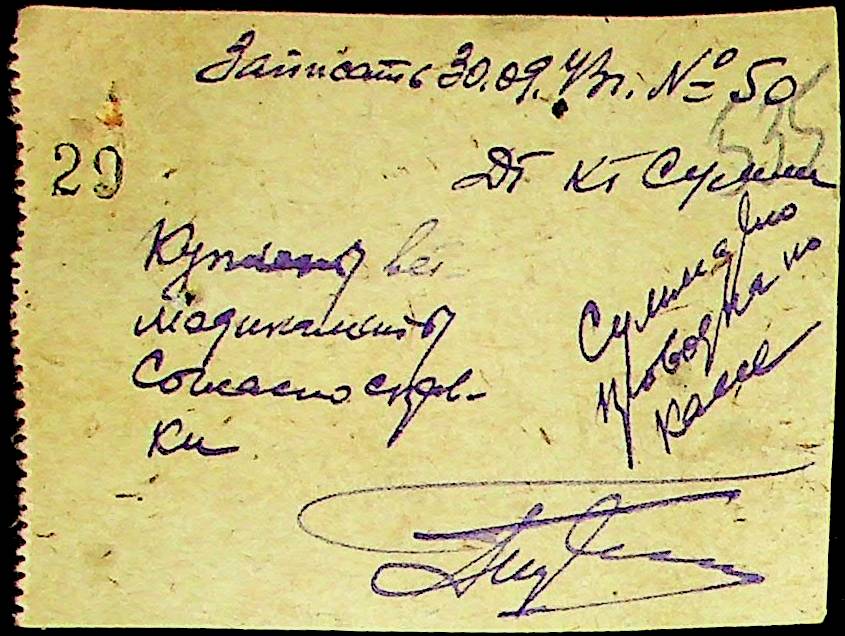 Записать 30.09.43г. № 50
535
29
Дт Кт Сумма
Куплены вет
медикаменты
Согласно справ-
ки
Сумма
проведена по
кассе